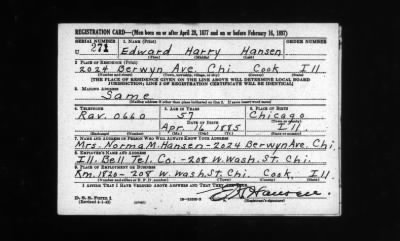 REGISTRATION CARD—(Men born on or after April 28, 1877 and on or before February 16, 1897)
SERIAL NUMBER 1. NAME (Print) ORDER NUMBER
U 271 Edward Harry Hansen
(First) (Middle) (Last)
2. PLACE OF RESIDENCE (Print)
2024 Berwyn Ave. Chi. Cook Ill
(Number and street) (Town, township, village, or city) (County) (State)
[THE PLACE OF RESIDENCE GIVEN ON THE LINE ABOVE WILL DETERMINE LOCAL BOARD
JURISDICTION; LINE 2 OF REGISTRATION CERTIFICATE WILL BE IDENTICAL]
3. MAILING ADDRESS
Same
[Mailing address if other than place indicated on line 2. If same insert word same]
4. TELEPHONE 5. AGE IN YEARS 6. PLACE OF BIRTH
Rav. 0660 57 Chicago
DATE OF BIRTH (Town or county)
Apr. 16 1885 Ill.
(Exchange) (Number) (Mo.) (Day) (Yr.) (State or country)
7. NAME AND ADDRESS OF PERSON WHO WILL ALWAYS KNOW YOUR ADDRESS
Mrs. Norma M. Hansen-2024 Berwyn Ave. Chi.
8. EMPLOYER'S NAME AND ADDRESS
Ill. Bell Tel. Co.-208 W. Wash. St. Chi.
9. PLACE OF EMPLOYMENT OR BUSINESS
Rm. 1820-208 W. Wash. St. Chi. Cook, Ill
(Number and street or R. F. D. number) (Town) (County) (State)
I AFFIRM THAT I HAVE VERIFIED ABOVE ANSWERS AND THAT THEY ARE TRUE.
D. S. S. Form 1
(Revised 4-1-42) (Registrant's signature)
Hansen